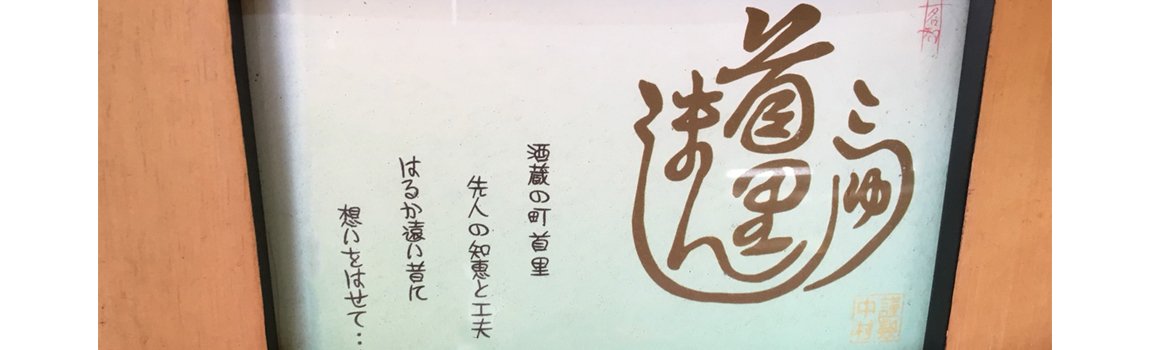 首里
まんじゅう
酒蔵の町首里
先人の知恵と工夫
はるか遠い昔に
想いをはせて・・